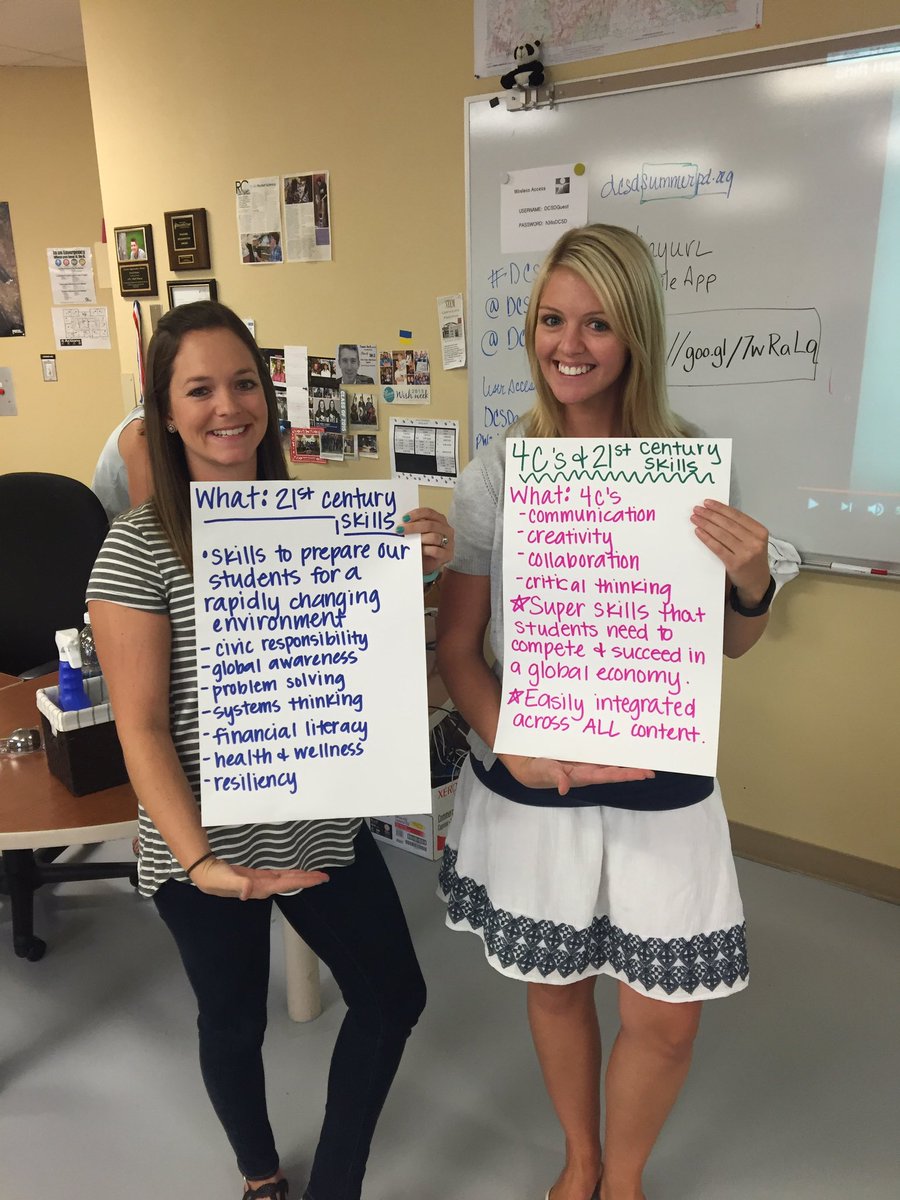 What: 21st century
skills
• skills to prepare our
students for a
rapidly changing
environment
- civic responsibility
- global awareness
- problem solving
- systems thinking
- financial literacy
- health & wellness
- resiliency
4C's & 21st century
skills
What: 4c's
- communication
- creativity
- collaboration
- critical thinking
☆Super skills that
students need to
compete & succeed in
a global economy.
☆Easily integrated
across ALL content.
Wireless Access
USERNAME: DCSDGuest
PASSWORD:
dcsdsummerpd.org
App
//goo.gl/7wRaLq
#DC
@ DC
@ DC
User Access
DCSD
RC
Wish week
XEROX